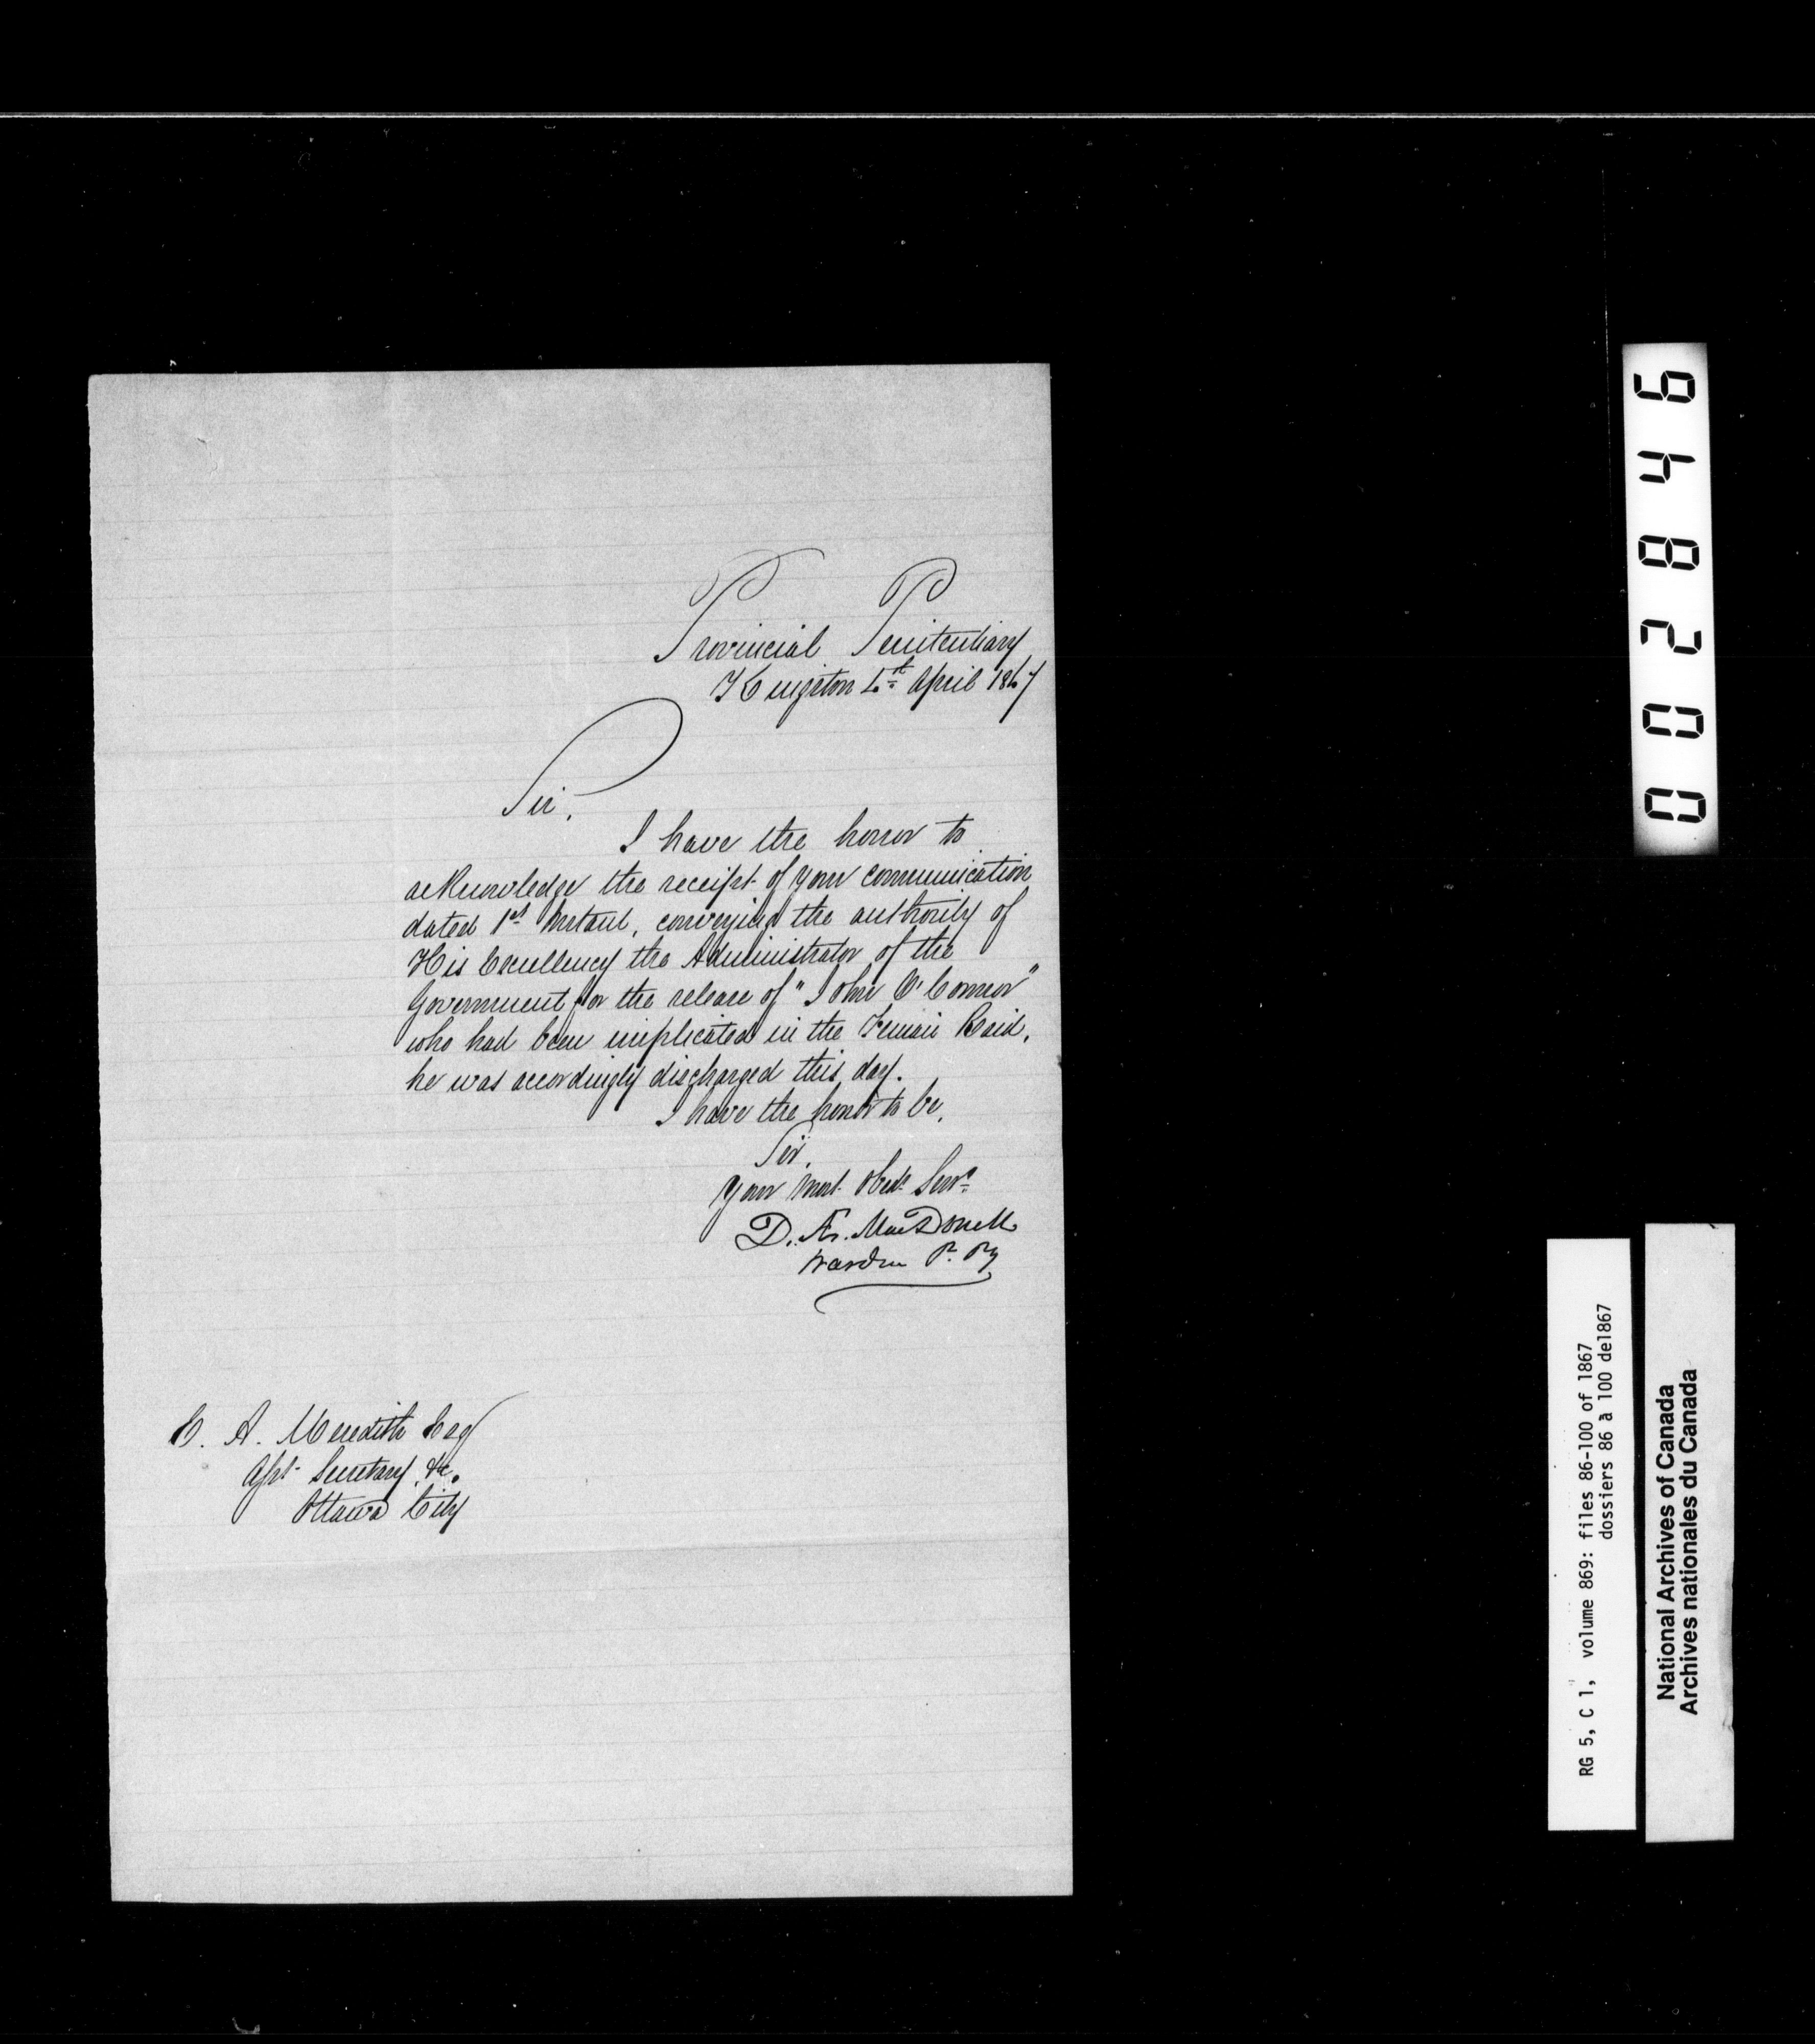 Provincial Penitentiary
Kingston 4th April 1867
Sir,
I have the honor to
acknowledge the receipt of your communication
dated 1st Instant, conveying the authority of
His Excellency the Administrator of the
Government for the release of "John O'Connor"
who had been implicated in the Fenian Raid,
he was accordingly discharged this day.
I have the honor to be,
Sir,
Your Most Obedt Servt
D. Æ. MacDonell
Warden P. Py
E. A. Meredith Esq
Asst Secretary, &c.
Ottawa City
002846
RG 5, C 1, volume 869: files 86-100 of 1867
dossiers 86 à 100 de1867
National Archives of Canada
Archives nationales du Canada